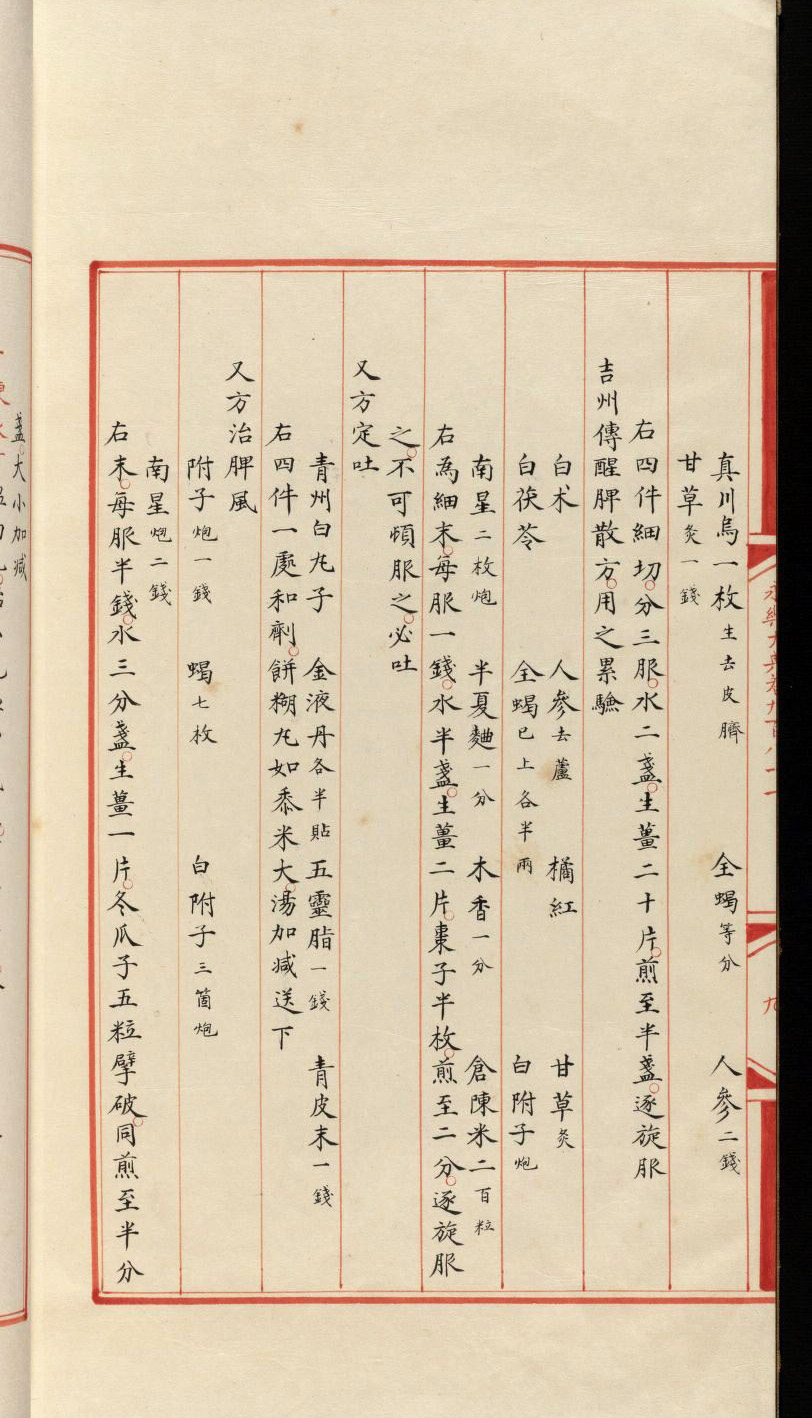 真川烏一枚生去皮臍　全蝎等分　人參二錢
甘草炙一錢
右四件細切。分三服。水二盞。生薑二十片。煎至半盞。逐旋服
吉州傳醒脾散方。用之累驗
白术　人參去蘆　橘紅　甘草炙
白茯苓　全蝎已上各半兩　白附子炮
南星二枚炮　半夏麯一分　木香一分　倉陳米二百粒
右為細末。每服一錢。水半盞。生薑二片。棗子半枚。煎至二分。逐旋服
之。不可頓服之。必吐
又方定吐
青州白丸子　金液丹各半貼　五靈脂一錢　青皮末一錢
右四件一處和劑。餅糊丸如黍米大。湯加減送下
又方治脾風
附子炮一錢　蝎七枚　白附子三箇炮
南星炮二錢
右末。每服半錢。水三分盞。生薑一片。冬瓜子五粒擘破。同煎至半分
盞。大小加減